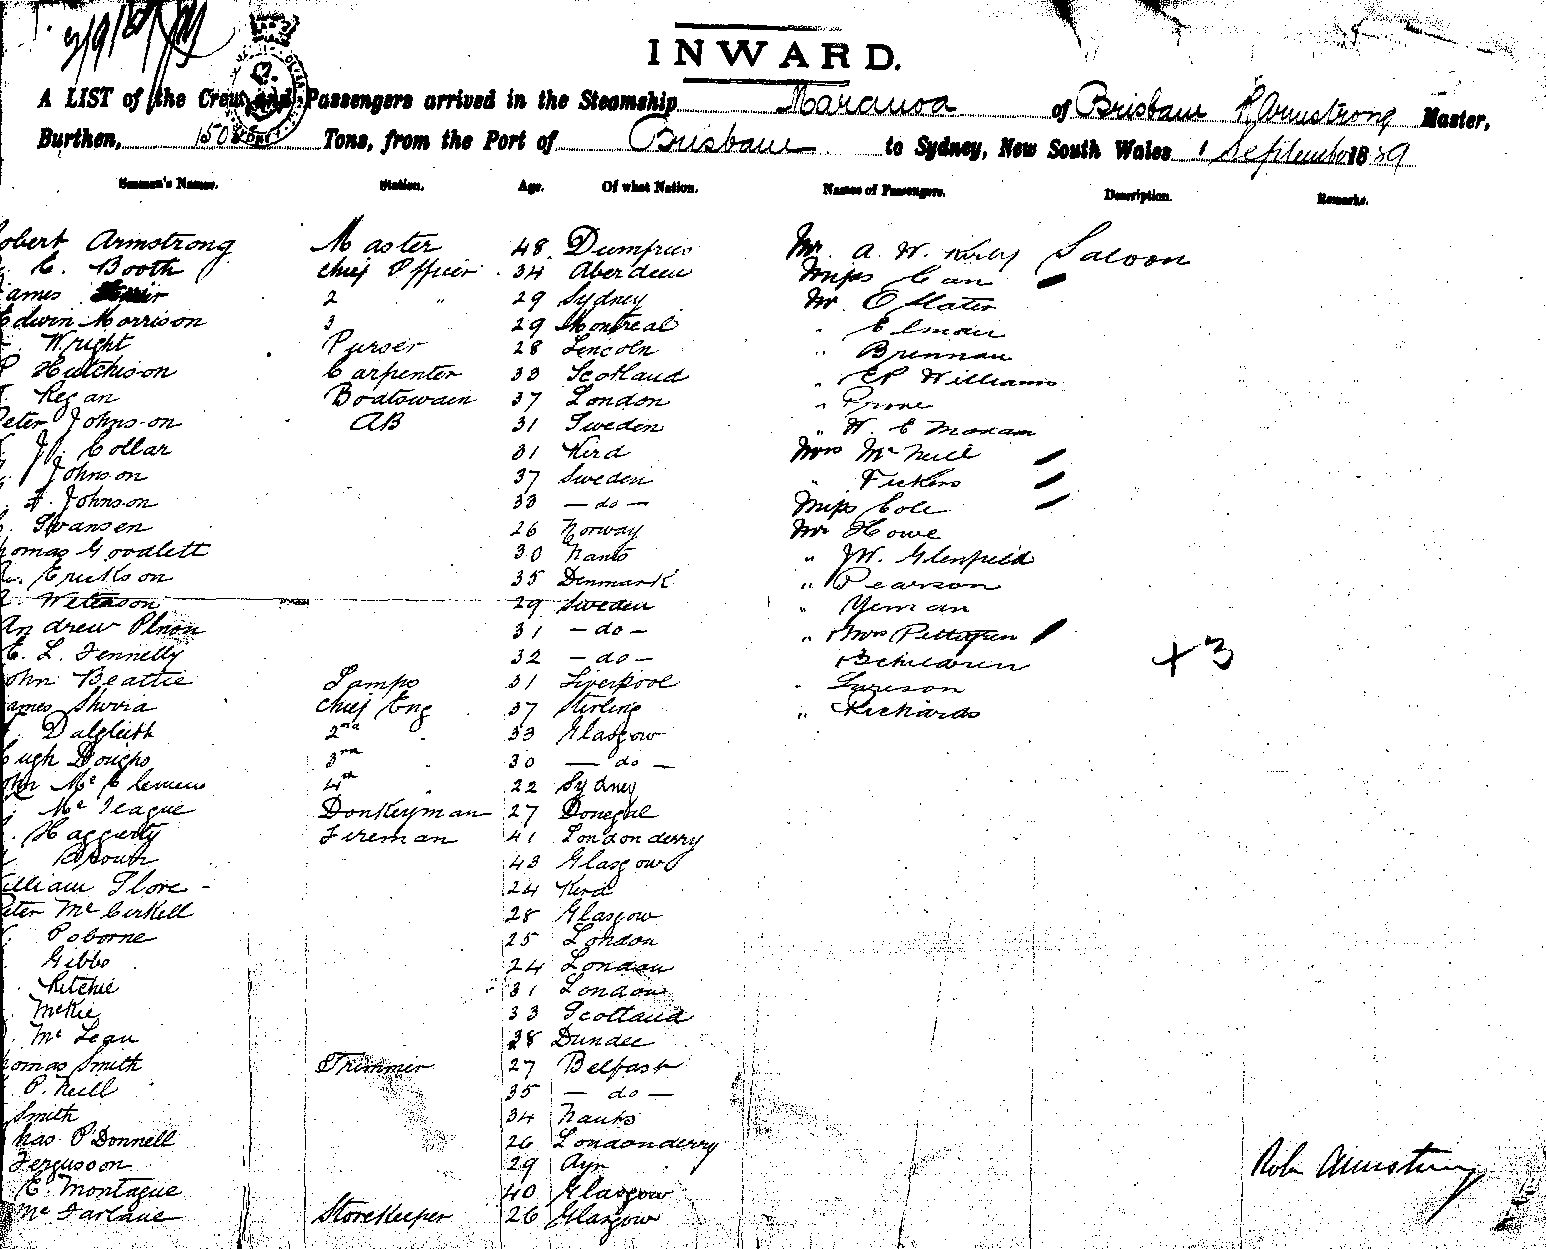 3/9/89
INWARD.
A LIST of the Crew and Passengers arrived in the Steamship Maranoa of Brisbane R Armstrong Master,
Burthen, 1505 Tons, from the Port of Brisbane to Sydney, New South Wales 1 September 1889
Seaman's Names. Station. Age. Of what Nation. Names of Passengers. Description. Remarks.
obert Armstrong Master 48. Dumfries Mr. A. W. Kirby Saloon
E. Booth Chief Officer 34 Aberdeen Miss Can
ames 2 " 29 Sydney Mr. O Slater
Edwin Morrison 3 29 Montreal " Elman
Wright Purser 28 Lincoln " Brennan
P Hutchison Carpenter 33 Scotland " EP Williams
Regan Boatswain 37 London "
Peter Johnson AB 31 Sweden " W. E Moxam
J. Collar 31 Kird Mrs McNeill
Johnson 37 Sweden " Fickers
F. Johnson 33 — do — Miss Cole
Swansen 26 Norway Mr Howe
homas Goodlett 30 Hants " JW. Glenfield
Erickson 35 Denmark " Pearson
29 Sweden " Yeman
Andrew 31 — do — " Mrs
E. L. Fennelly 32 — do — 3 children + 3
ohn Beattie Lamps 31 Liverpool "
ames Chief Eng 37 Stirling " Richards
Dalgleish 2nd 33 Glasgow
ugh 3rd 30 — do —
ohn 4th 22 Sydney
McTeague Donkeyman 27 Donegal
Haggerty Fireman 41 Londonderry
Brown 43 Glasgow
illiam 24 Kird
eter McCorkell 28 Glasgow
Osborne 25 London
Gibbs 24 London
Ritchie 31 London
McKie 33 Scotland
McLean 38 Dundee
homas Smith Trimmer 27 Belfast
O. Neill 35 — do —
Smith 34 Hants
has O'Donnell 26 Londonderry
Fergusson 29 Ayr
E. Montague 40 Glasgow
McFarlane Storekeeper 26 Glasgow
Robt Armstrong